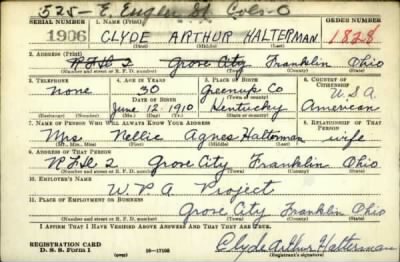 525 - E. Engler St Cols-O
SERIAL NUMBER 1. NAME (Print) ORDER NUMBER
1906 CLYDE ARTHUR HALTERMAN 1828
(First) (Middle) (Last)
2. ADDRESS (Print)
RFD 2 Grove City Franklin Ohio
(Number and street or R. F. D. number) (Town) (County) (State)
3. TELEPHONE 4. AGE IN YEARS 5. PLACE OF BIRTH 6. COUNTRY OF CITIZENSHIP
none 30 Greenup Co U.S.A
DATE OF BIRTH (Town or county)
June 12 1910 Kentucky American
(Exchange) (No.) (Mo.) (Day) (Yr.) (State or country)
7. NAME OF PERSON WHO WILL ALWAYS KNOW YOUR ADDRESS 8. RELATIONSHIP OF THAT PERSON
Mrs Nellie Agnes Halterman wife
(Mr., Mrs., Miss) (First) (Middle) (Last)
9. ADDRESS OF THAT PERSON
RFD 2 Grove City Franklin Ohio
(Number and street or R. F. D. number) (Town) (County) (State)
10. EMPLOYER'S NAME
W.P.A Project
11. PLACE OF EMPLOYMENT OR BUSINESS
Grove City Franklin Ohio
(Number and street or R. F. D. number) (Town) (County) (State)
I AFFIRM THAT I HAVE VERIFIED ABOVE ANSWERS AND THAT THEY ARE TRUE.
REGISTRATION CARD
D. S. S. Form 1 16-17105 Clyde Arthur Halterman
(over) (Registrant's signature)